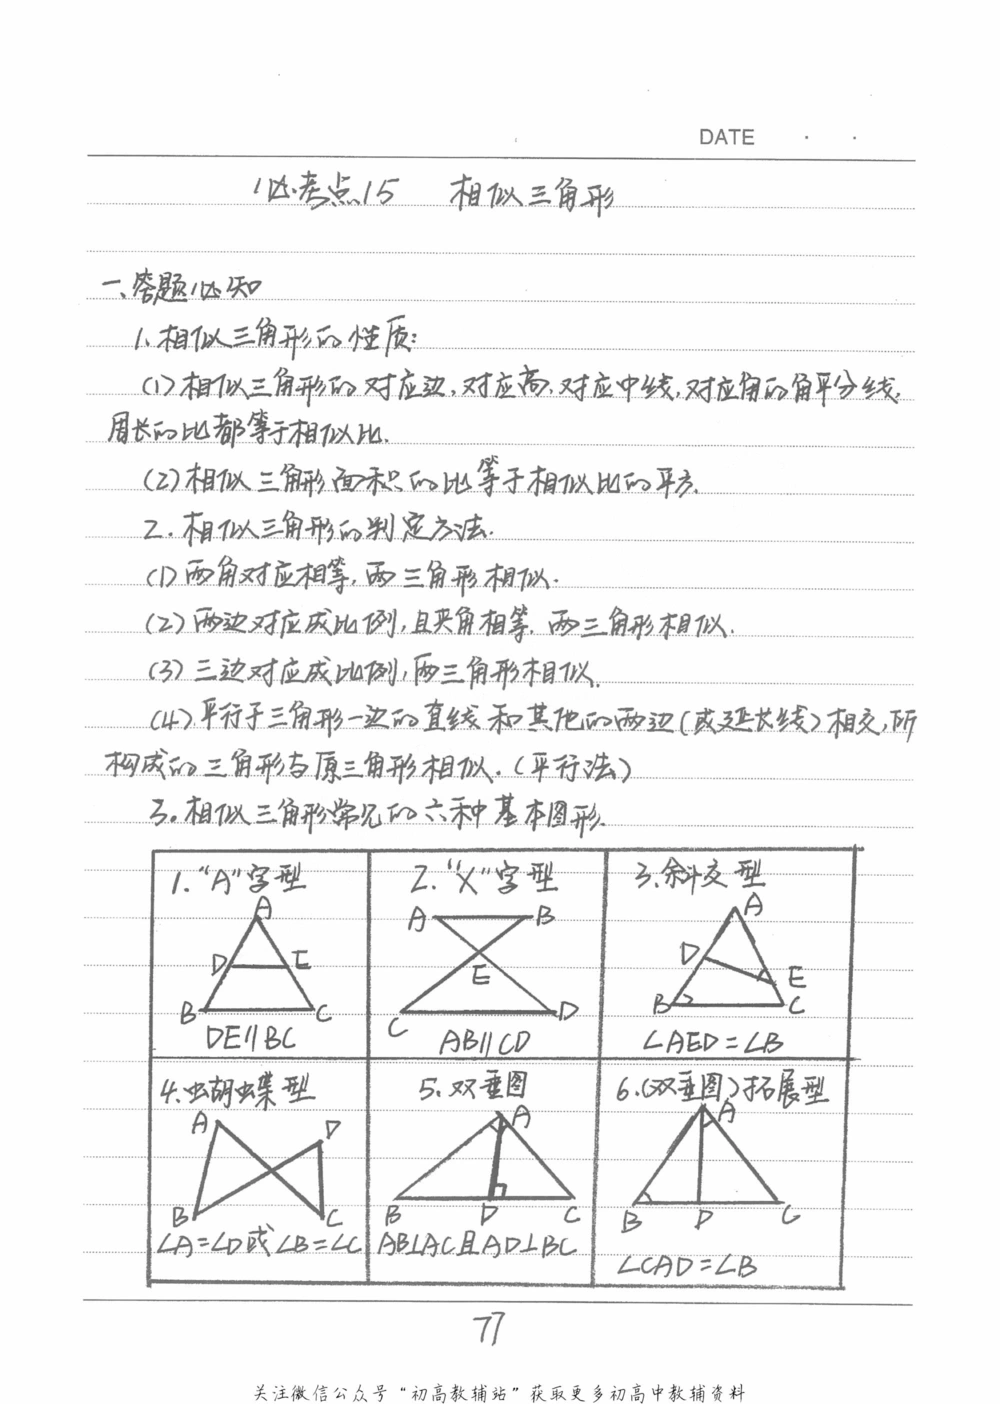 DATE · ·
必考点15 相似三角形
一、答题必知
1.相似三角形的性质:
(1)相似三角形的对应边,对应高,对应中线,对应角的角平分线,
周长的比都等于相似比.
(2)相似三角形面积的比等于相似比的平方.
2.相似三角形的判定方法.
(1)两角对应相等,两三角形相似.
(2)两边对应成比例,且夹角相等,两三角形相似.
(3)三边对应成比例,两三角形相似.
(4)平行于三角形一边的直线和其他的两边(或延长线)相交,所
构成的三角形与原三角形相似.(平行法)
3.相似三角形常见的六种基本图形.
1.“A”字型
A
D E
B C
DE∥BC
2.“X”字型
A B
E
C D
AB∥CD
3.斜交型
A
D
E
B C
∠AED=∠B
4.蝴蝶型
A D
B C
∠A=∠D或∠B=∠C
5.双垂图
A
B D C
AB⊥AC且AD⊥BC
6.(双垂图)拓展型
A
B D C
∠CAD=∠B
77
关注微信公众号“初高教辅站”获取更多初高中教辅资料